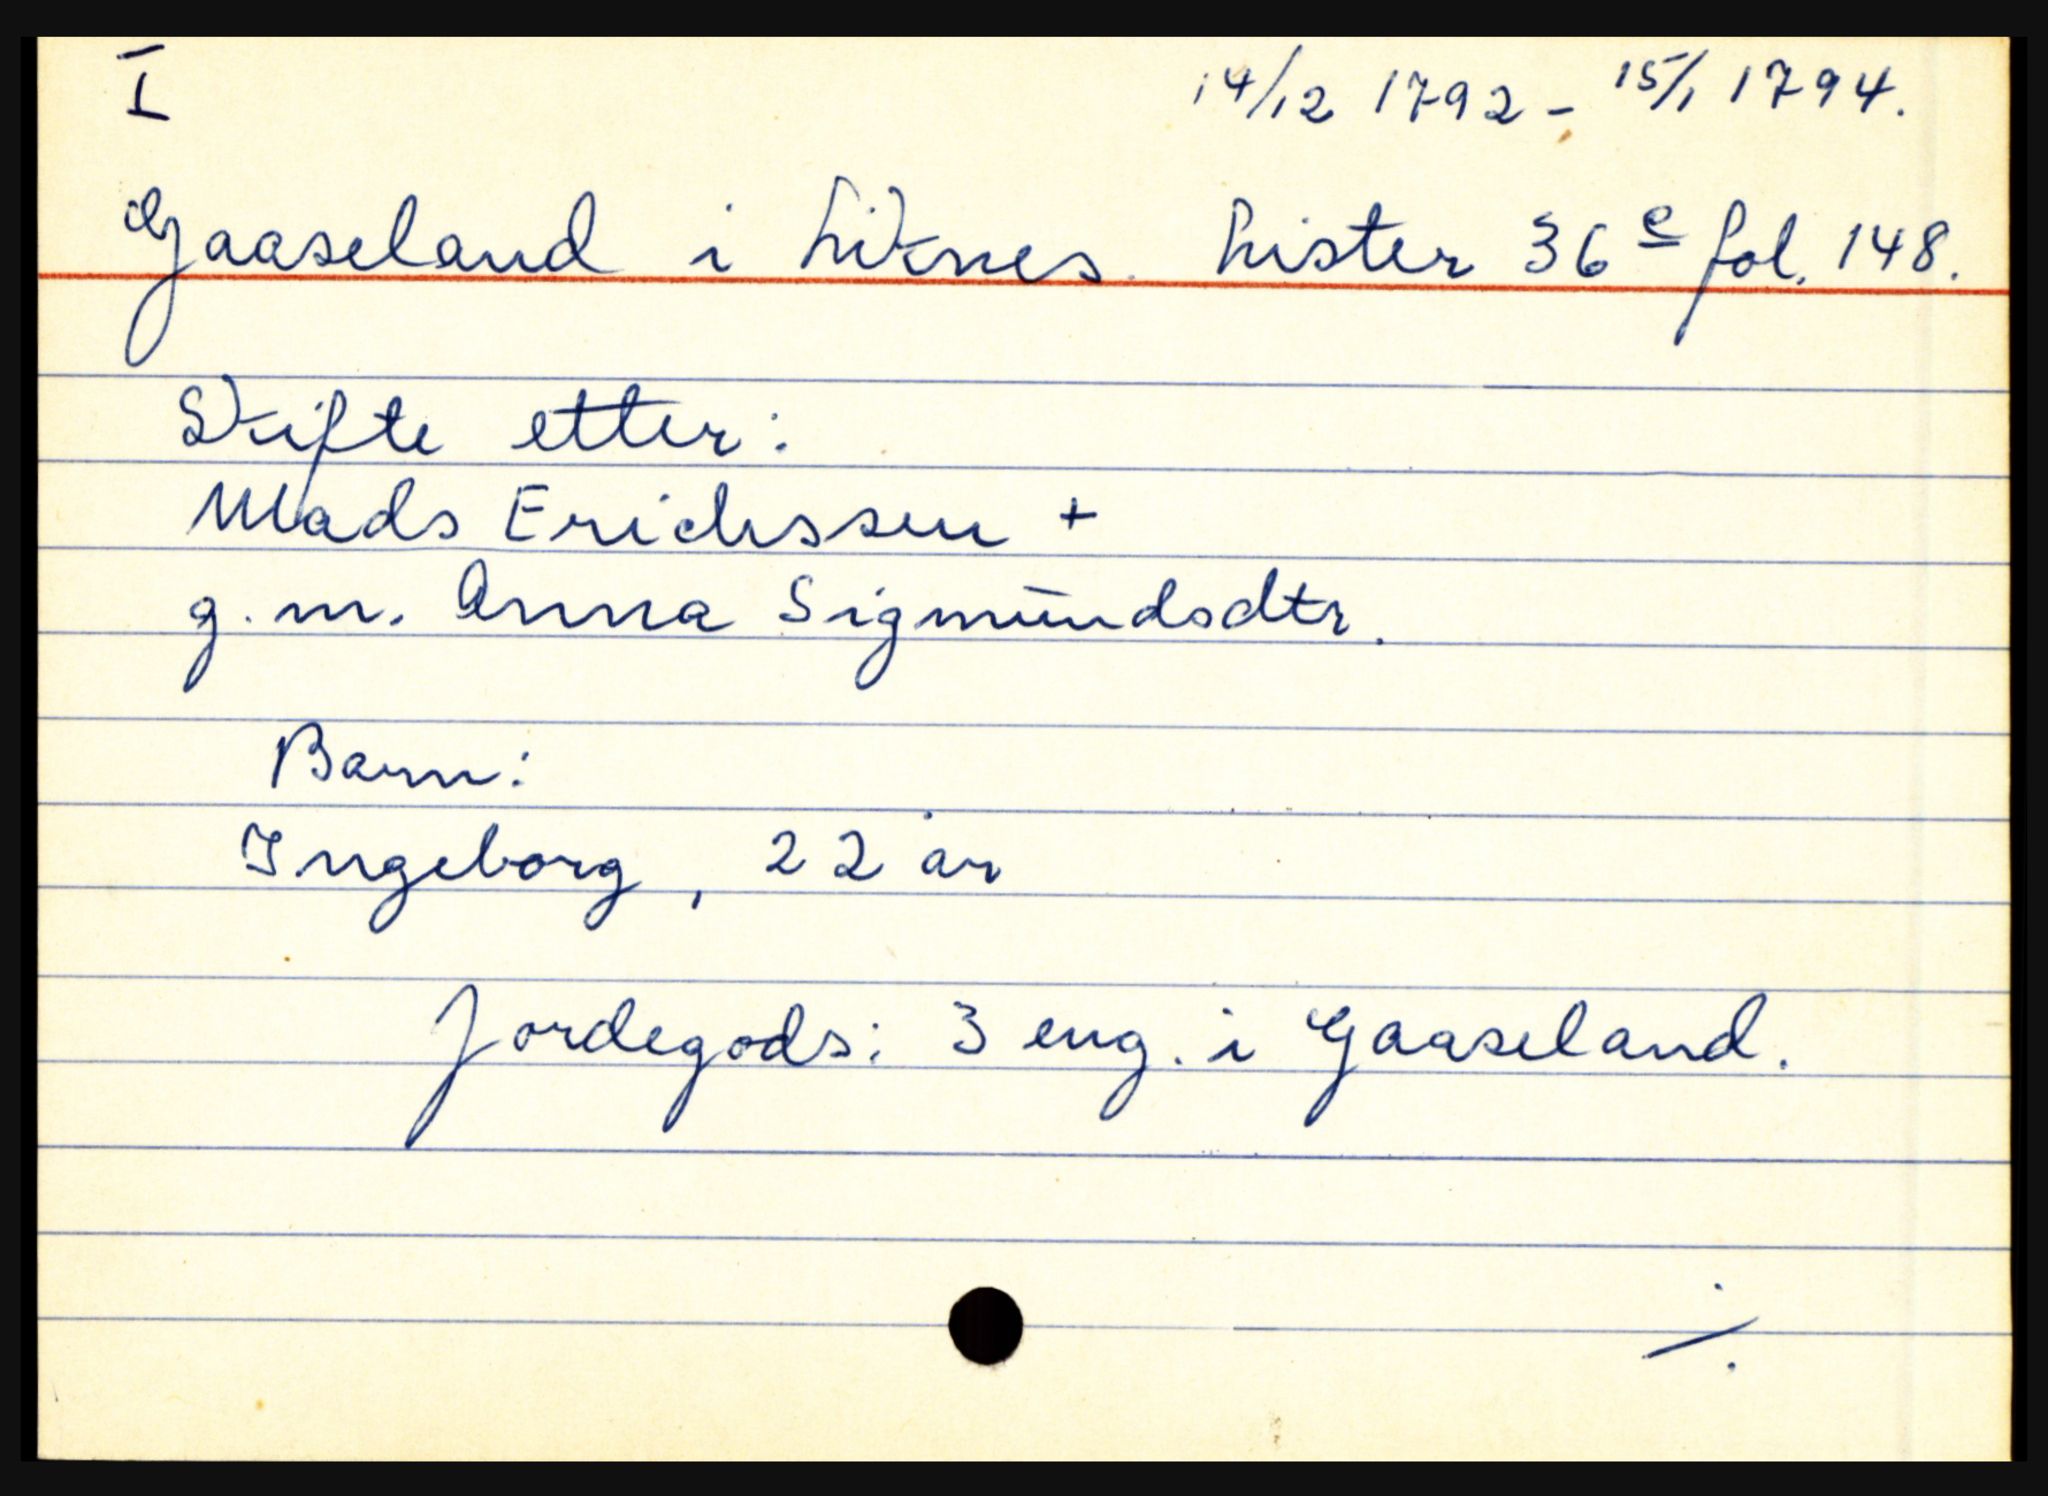 I 14/12 1792 - 15/1 1794.
Gaaseland i Liknes. Lister 36 c fol. 148.
Skifte etter:
Mads Erichssen +
g. m. Anna Sigmundsdtr.
Barn:
Ingeborg, 22 år
Jordegods: 3 eng. i Gaaseland.
./.